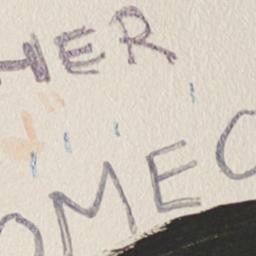 HER
OMEO